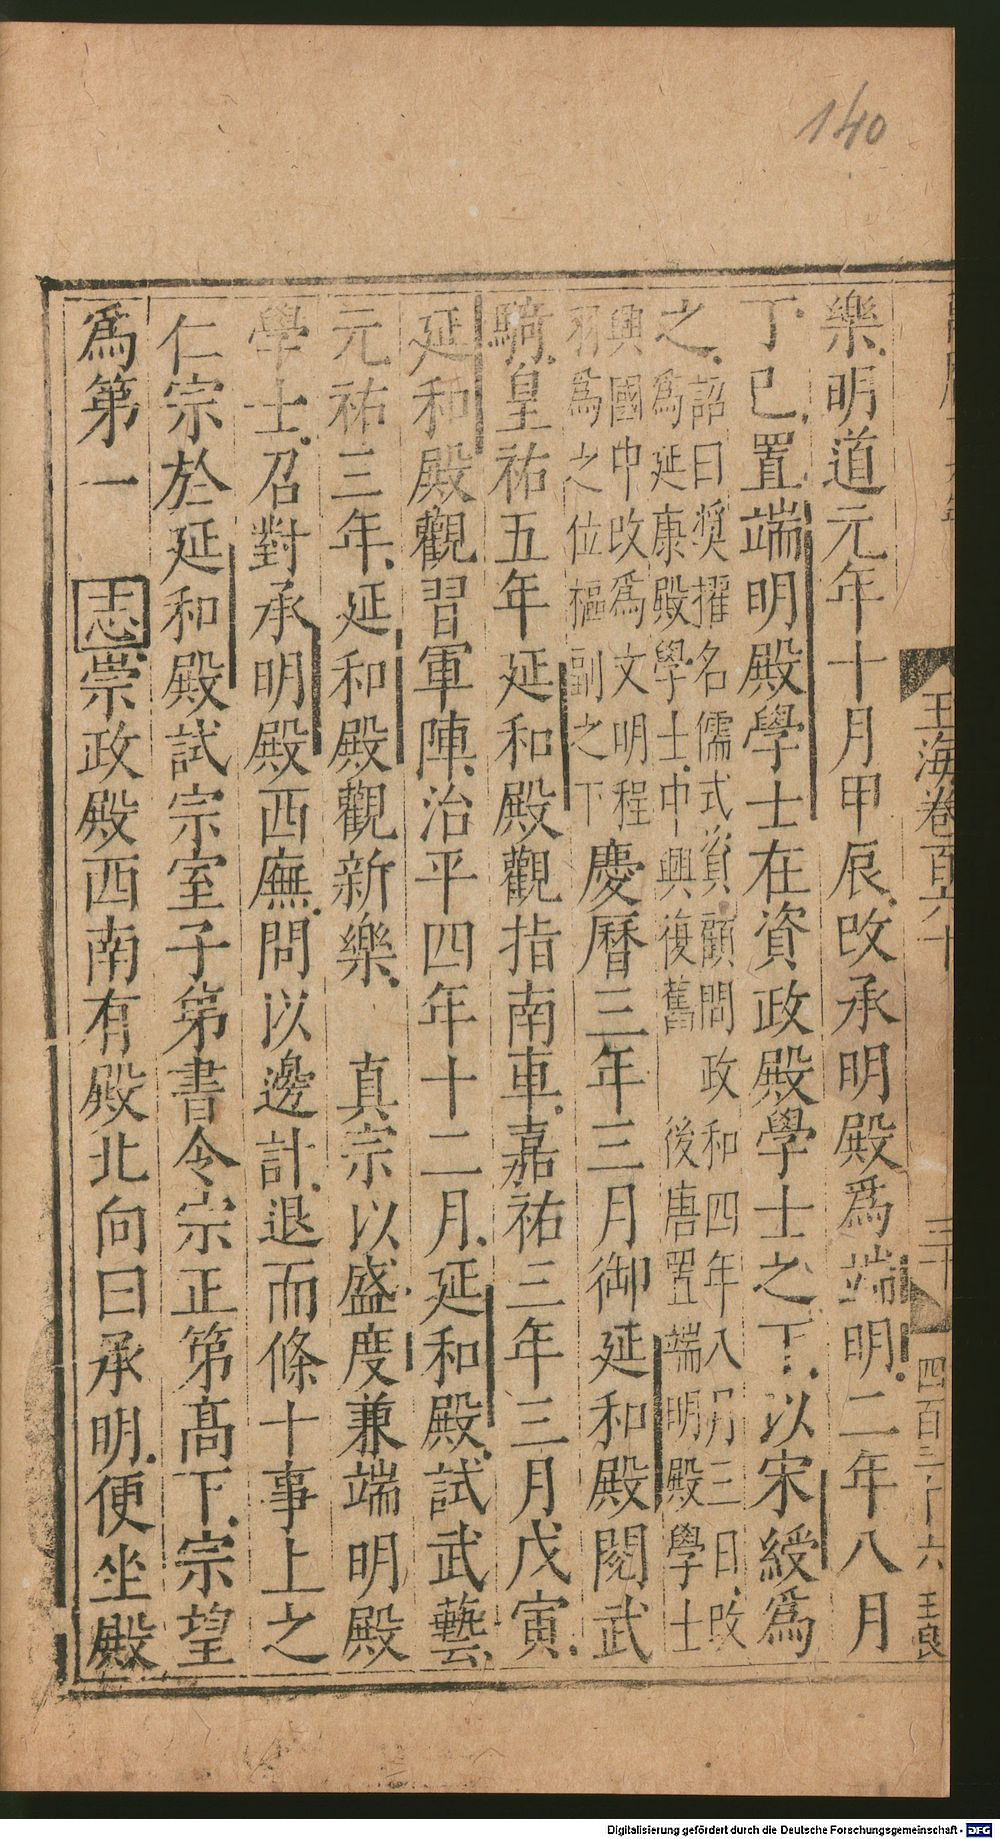 140
玉海卷百六十
三十
四百三十六
王良
樂明道元年十月甲辰改承明殿爲端明二年八月
丁巳置端明殿學士在資政殿學士之下以宋綬爲
之詔曰奬擢名儒式資顧問政和四年八月三日改
爲延康殿學士中興復舊 後唐置端明殿學士
興國中改爲文明程
羽爲之位樞副之下慶曆三年三月御延和殿閱武
騎皇祐五年延和殿觀指南車嘉祐三年三月戊寅
延和殿觀習軍陣治平四年十二月延和殿試武藝
元祐三年延和殿觀新樂 真宗以盛度兼端明殿
學士召對承明殿西廡問以邊計退而條十事上之
仁宗於延和殿試宗室子第書令宗正第髙下宗望
爲第一 志崇政殿西南有殿北向曰承明便坐殿
Digitalisierung gefördert durch die Deutsche Forschungsgemeinschaft - DFG